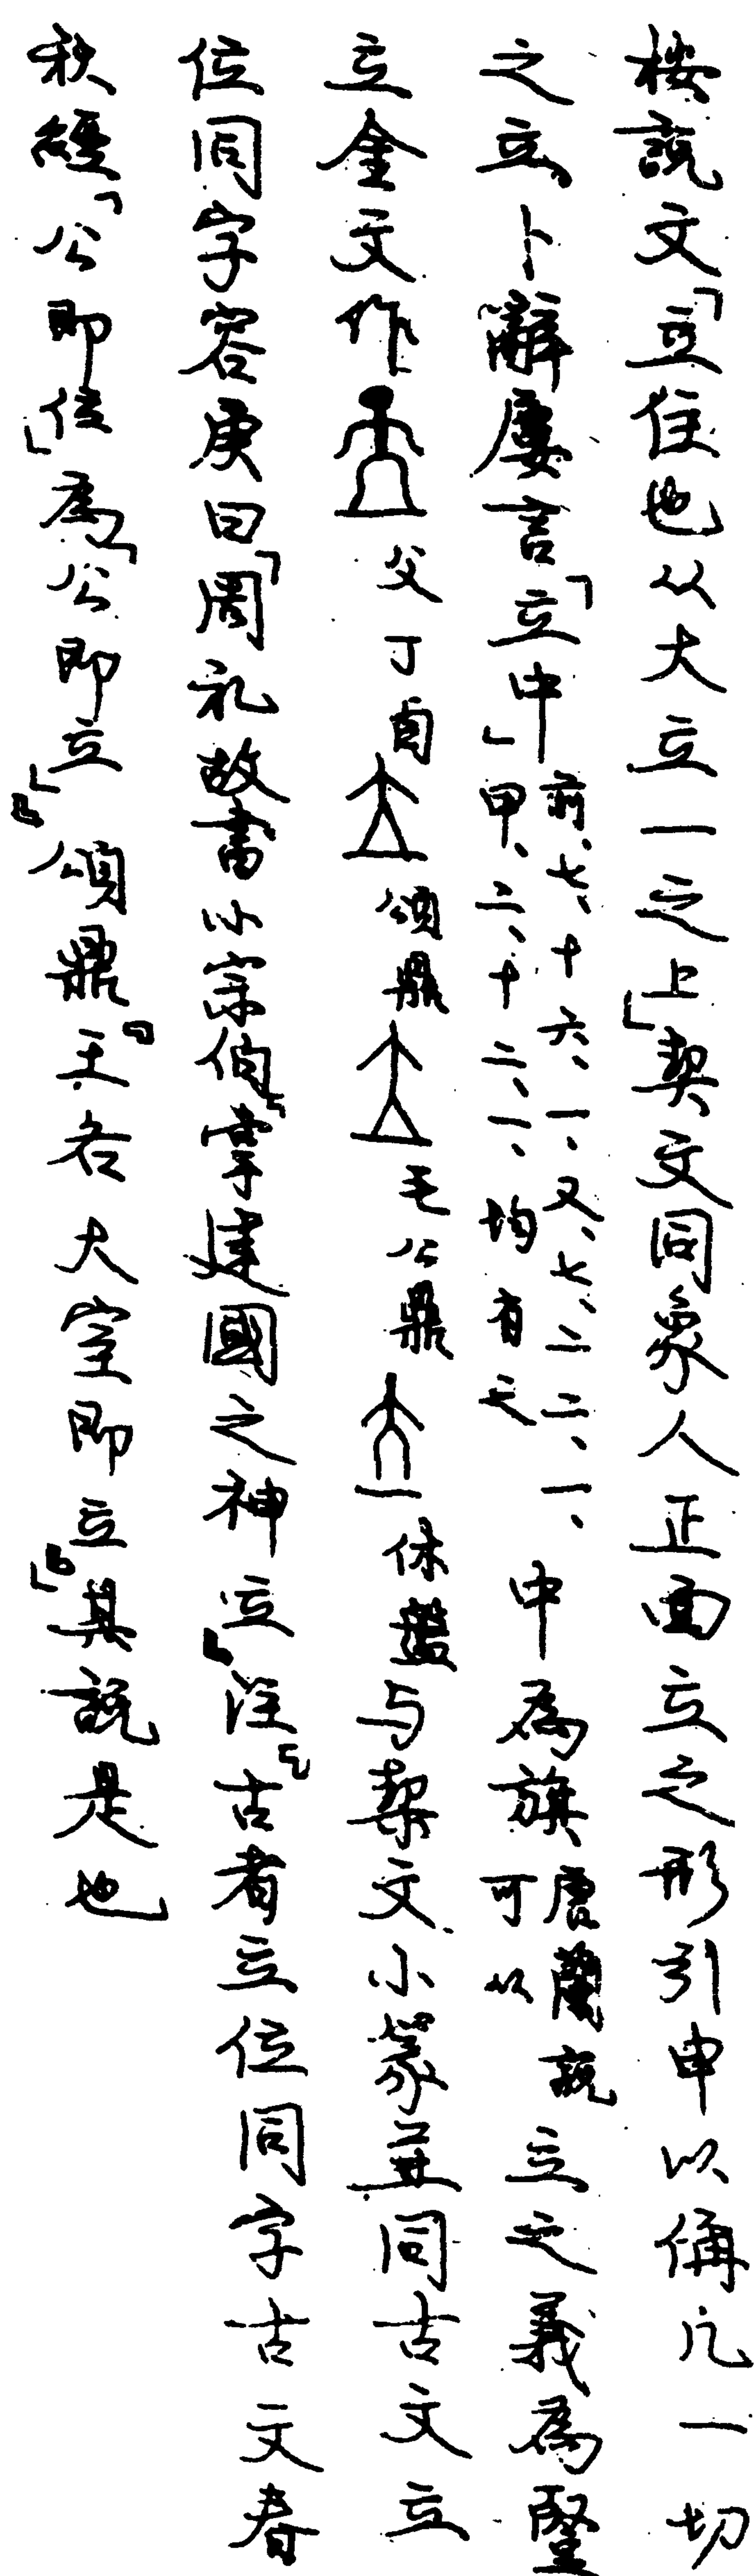 按說文「立住也从大立一之上」契文同象人正面立之形引申以偁凡一切
之立卜辭屢言「立中」前、七、十六、一、又、七、二二、一、甲、二、十二、一、均有之中為旗唐蘭說可从立之義為豎
立金文作父丁卣頌鼎毛公鼎休盤与契文小篆並同古文立
位同字容庚曰「周礼故書小宗伯『掌建國之神立』注『古者立位同字古文春
秋經「公即位」為「公即立」』頌鼎『王各大室即立』」其說是也